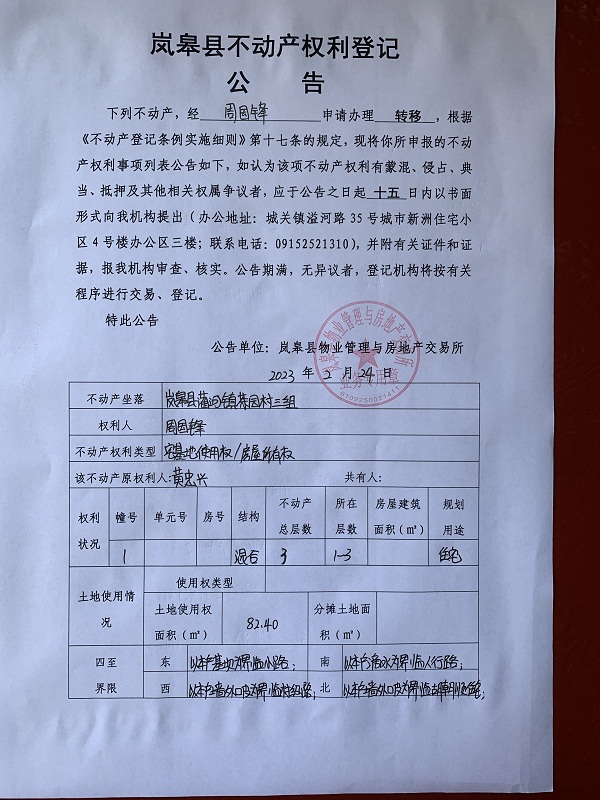 岚皋县不动产权利登记
公 告
下列不动产，经 周国锋 申请办理 转移 ，根据
《不动产登记条例实施细则》第十七条的规定，现将你所申报的不动
产权利事项列表公告如下，如认为该项不动产权利有蒙混、侵占、典
当、抵押及其他相关权属争议者，应于公告之日起 十五 日内以书面
形式向我机构提出（办公地址：城关镇溢河路 35 号城市新洲住宅小
区 4 号楼办公区三楼；联系电话：09152521310），并附有关证件和证
据，报我机构审查、核实。公告期满，无异议者，登记机构将按有关
程序进行交易、登记。
特此公告
公告单位：岚皋县物业管理与房地产交易所
2023 年 2 月 24 日
岚皋县物业管理与房地产交易所
业务专用章
6109250021411
不动产坐落 岚皋县蔺河镇茶园村三组
权利人 周国锋
不动产权利类型 宅基地使用权/房屋所有权
该不动产原权利人：黄忠兴 共有人：
权利状况 幢号 单元号 房号 结构 不动产总层数 所在层数 房屋建筑面积（㎡） 规划用途
1 混合 3 1-3 住宅
土地使用情况 使用权类型
土地使用权面积（㎡） 82.40 分摊土地面积（㎡）
四至界限 东 临小路； 南 临人行路；
西 北